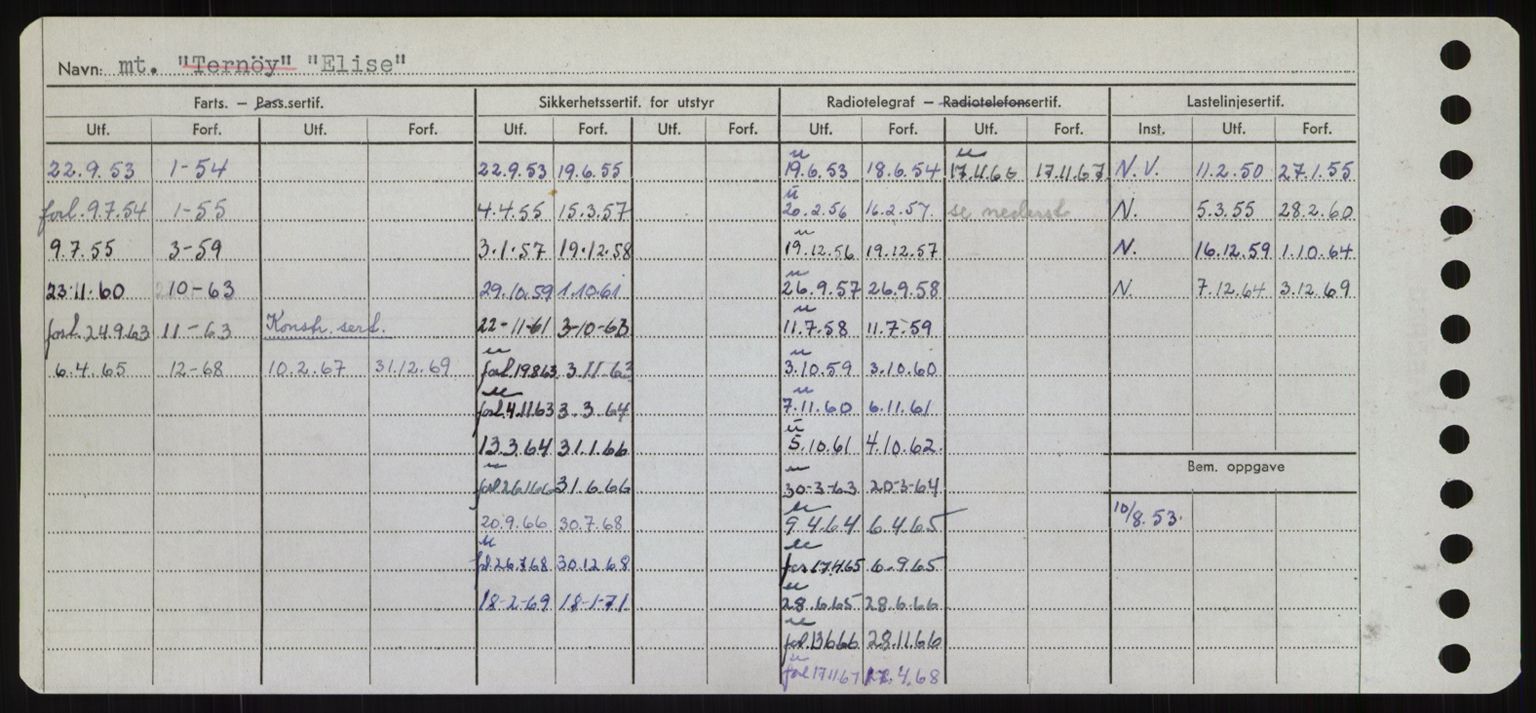 Navn: mt. "Ternöy" "Elise"
Farts. — Pass.sertif. Sikkerhetssertif. for utstyr Radiotelegraf — Radiotelefonsertif. Lastelinjesertif.
Utf. Forf. Utf. Forf. Utf. Forf. Utf. Forf. Utf. Forf. Utf. Forf. Inst. Utf. Forf.
22.9.53 1-54 22.9.53 19.6.55 u 19.6.53 18.6.54 u 17.11.66 17.11.67 N.V. 11.2.50 27.1.55
forl. 9.7.54 1-55 4.4.55 15.3.57 u 20.2.56 16.2.57 se nederst N. 5.3.55 28.2.60
9.7.55 3-59 3.1.57 19.12.58 u 19.12.56 19.12.57 N. 16.12.59 1.10.64
23.11.60 10-63 29.10.59 1.10.61 u 26.9.57 26.9.58 N. 7.12.64 3.12.69
forl. 24.9.63 11-63 Konstr. sert. 22-11-61 3-10-63 u 11.7.58 11.7.59
6.4.65 12-68 10.2.67 31.12.69 u forl. 19863 3.11-63 u 3.10.59 3.10.60
u forl. 4.11.63 3.3.64 u 7.11.60 6.11.61
13.3.64 31.1.66 u 5.10.61 4.10.62
Bem. oppgave
u forl 26166 31.6.66 u 30-3-63 20-3-64
20.9.66 30.7.68 u 9.4.64 6.4.65 10/8.53.
u fl. 26.7.68 30.12.68 u for. 17.4.65 6.9.65
18-2-69 18-1-71 u 28.6.65 28.6.66
u forl. 13666 28.11.66
u forl 171167 17.4.68